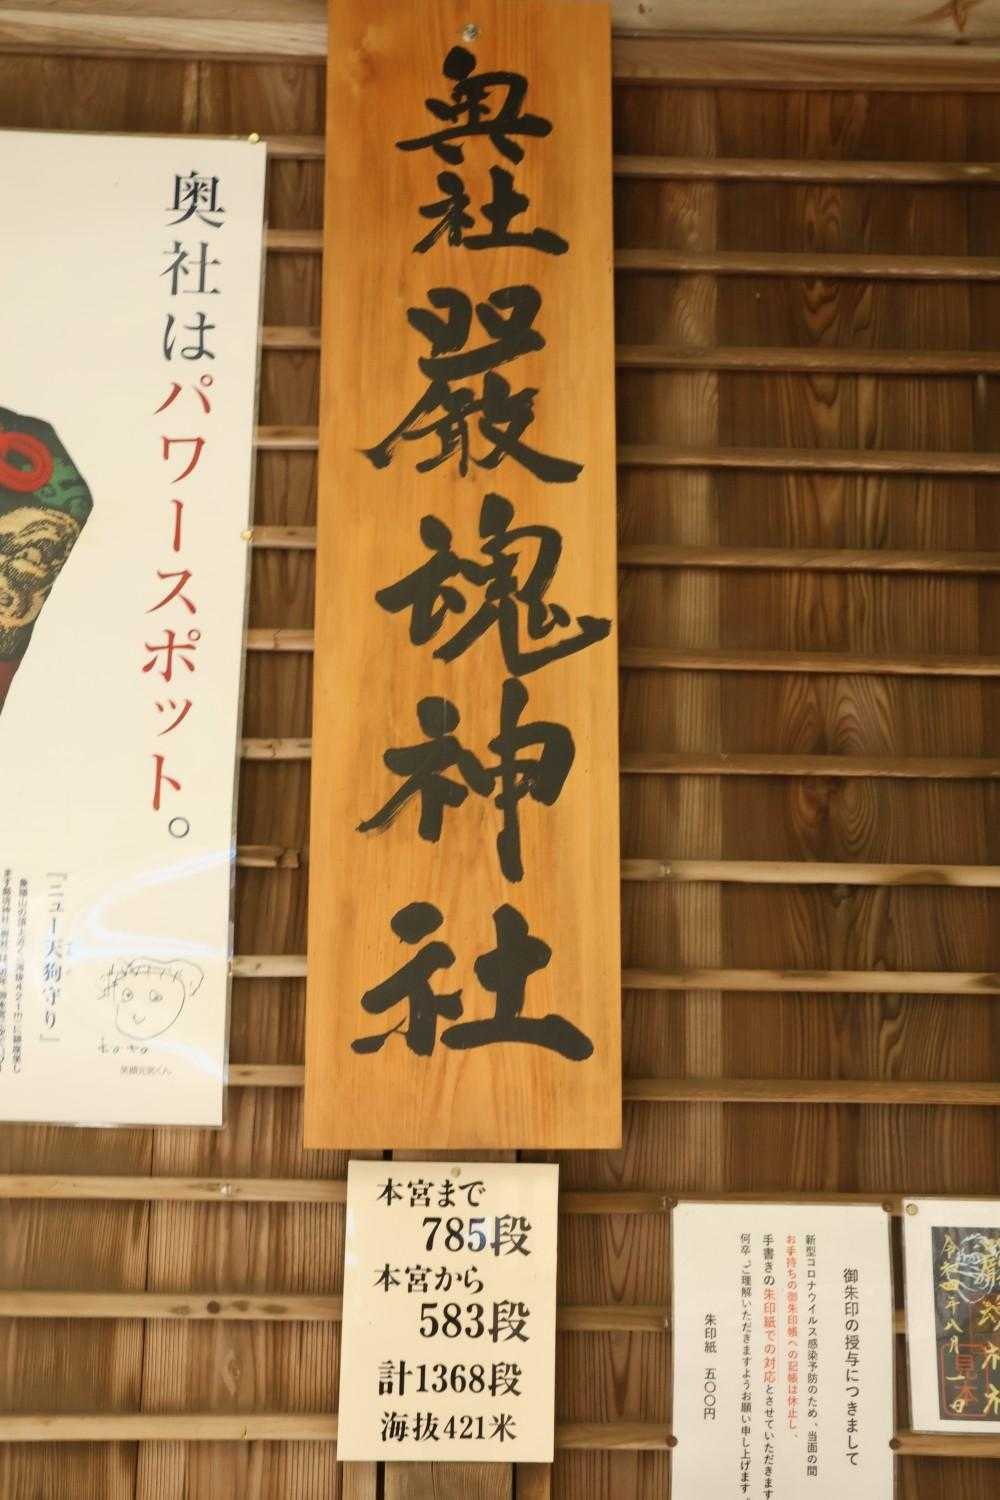 奥社厳魂神社
奥社はパワースポット。
『ニュー天狗守り』
笑顔元気くん
本宮まで
785段
本宮から
583段
計1368段
海抜421米
御朱印の授与につきまして
新型コロナウイルス感染予防のため、当面の間
お手持ちの御朱印帳への記帳は休止し、
手書きの朱印紙での対応とさせていただきます
何卒、ご理解いただきますようお願い申し上げます。
朱印紙 五〇〇円
見本
令和四年八月一日